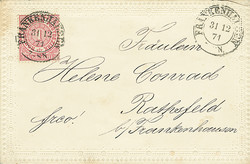 FRANKENHAUSEN
31 12
71
FRANKENHAUSEN
31 12
71
N
Fräulein
Helene Conrad
Rathsfeld
b/Frankenhausen
frco!